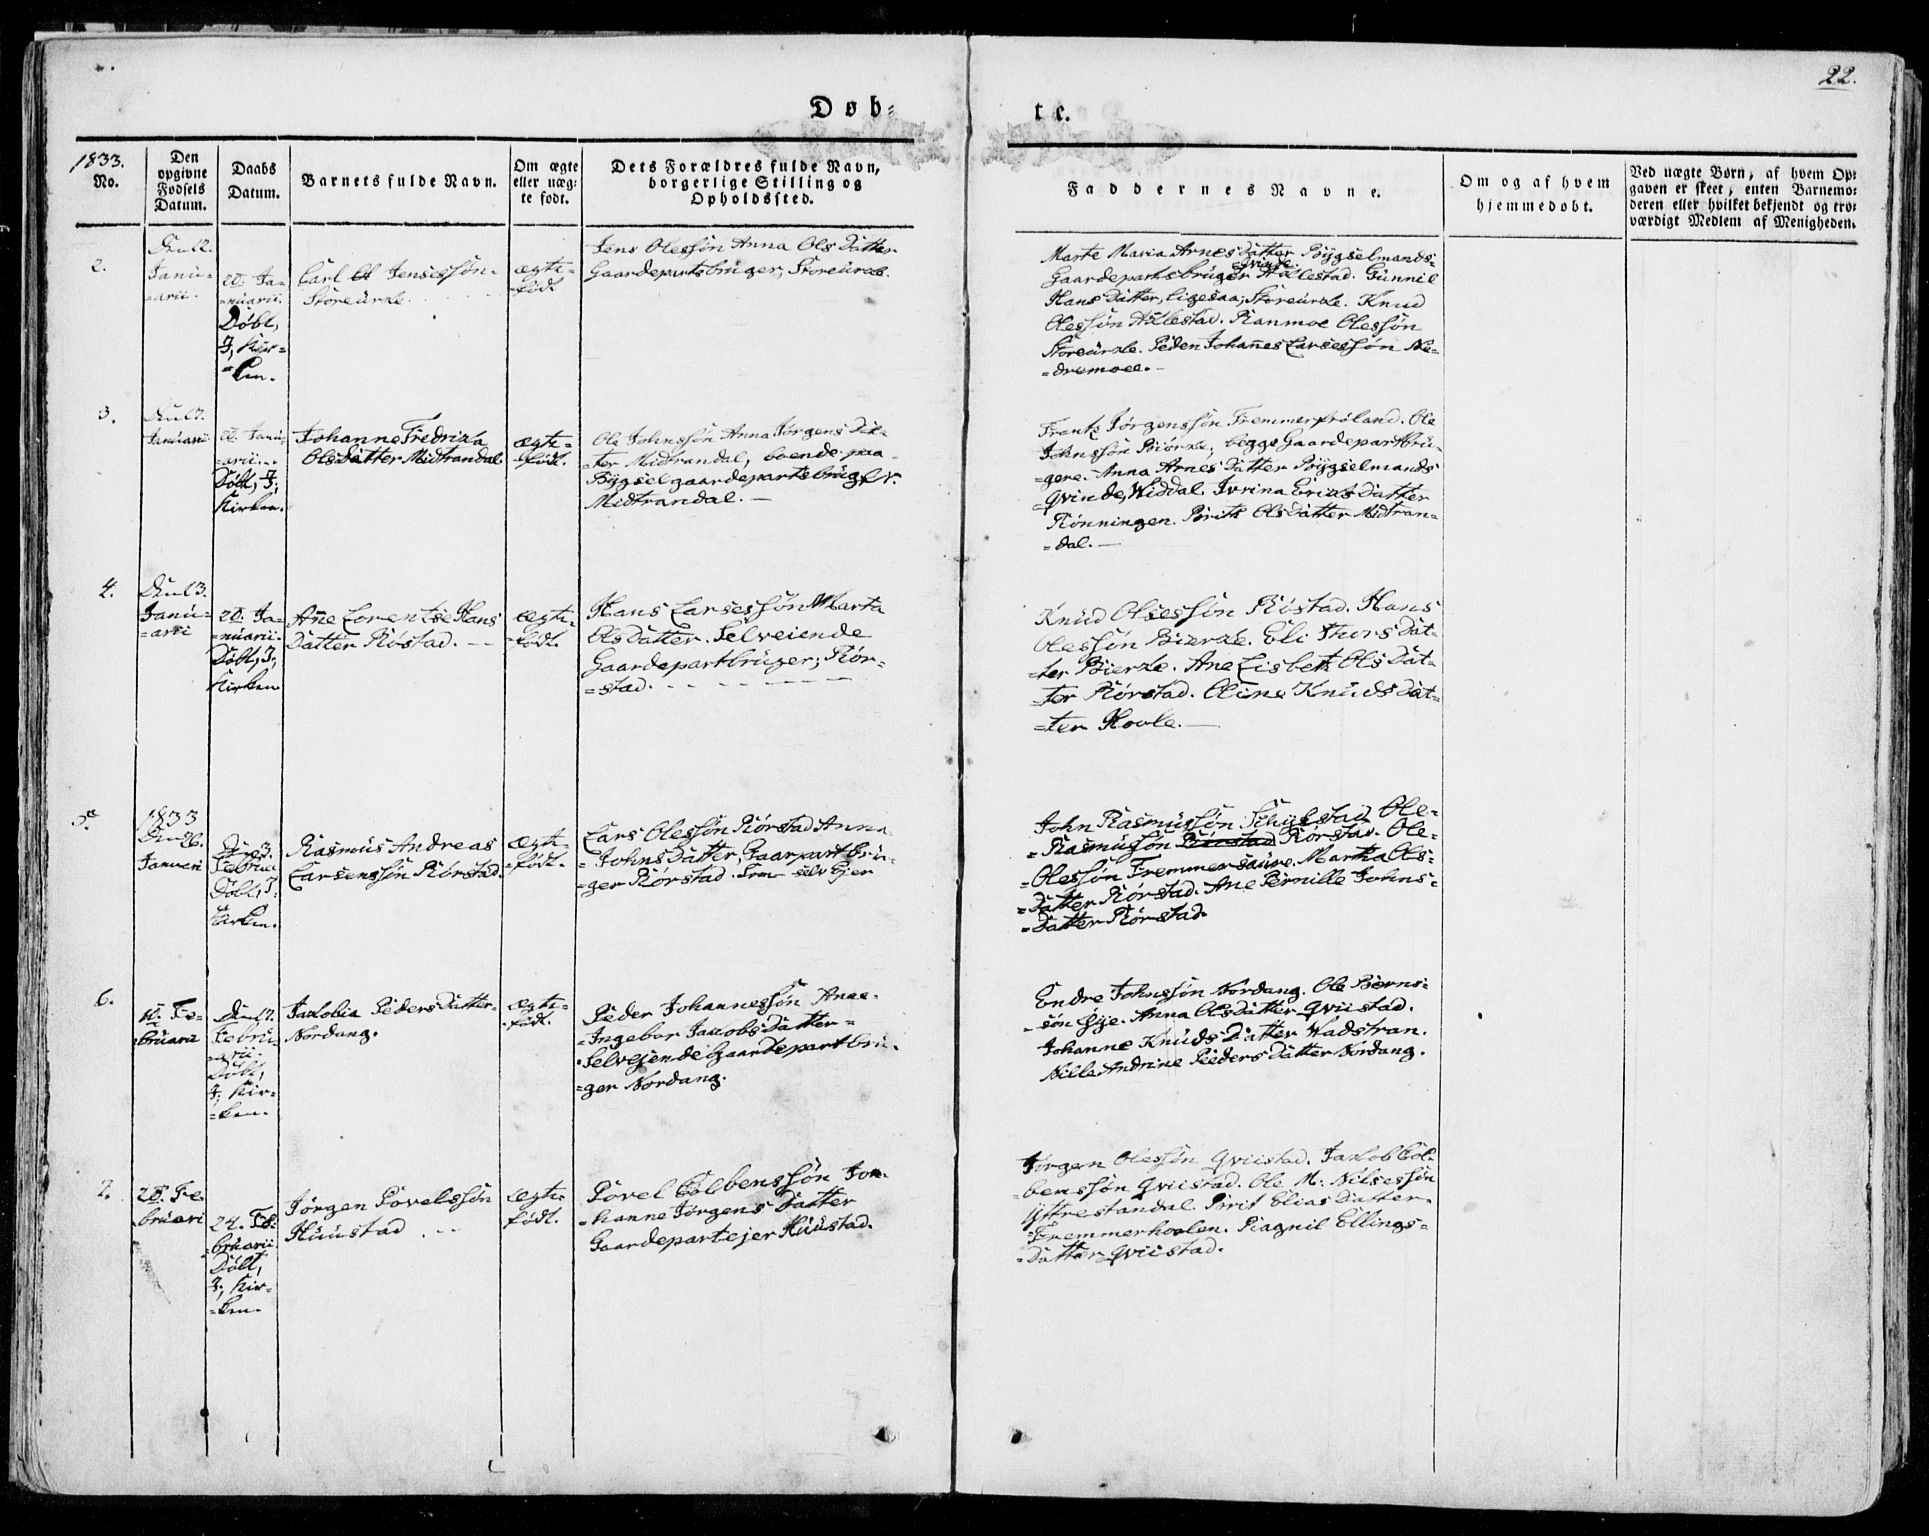 22.
Døb-
te.
1833.
No.
Den
opgivne
Fødsels
Datum.
Daabs
Datum.
Barnets fulde Navn.
Om ægte
eller uæg-
te født.
Dets Forældres fulde Navn,
borgerlige Stilling og
Opholdssted.
Faddernes Navne.
Om og af hvem
hjemmedøbt.
Ved uægte Børn, af hvem Op-
gaven er skeet, enten Barnemo-
deren eller hvilket bekjendt og tro-
værdigt Medlem af Menigheden.
2.
Janu-
=arii.
20. Ja-
=nuarii.
Døbt,
I, Kir=
=ken.
Carl Jensessøn
ægte-
=født
Jens Olessøn Anna Ols Datter
Gaardepartsbruger,
Marte Maria Arnes Datter Bÿgselmands-
=Qvinde.
Gaardepartsbruger Gunnil
Hans Datter, ligesaa, Knud
Olessøn Olessøn
Johanes Larsessøn Ne-
=dremoee.
3.
Januarii
20. Janu-
=arii.
Døbt, I,
Kirken.
Johanne Fredrika
Olsdatter Midtrandal
ægte-
=født.
Ole Johnssøn Anna Jørgens Dat-
ter Midtrandal, boende paa
Bÿgselgaardepartsbruger.
Midtrandal.
Frantz Jørgenssøn Fremmerfrøland. Ole
Johnssøn begge Gaardepartbru-
=gere. Anna Arnes Datter Bÿgselmands
Qvinde, Widdal. Datter
Rønningen. Olsdatter Midtran=
=dal.
4.
Janu-
=arii
20. Ja-
=nuarii.
Døbt, I,
Kirken
Ane Lorentse Hans
Datter Røstad.
ægte-
=født.
Hans Larsessøn Marta
Olsdatter. Selveiende
Gaardepartbruger; Rør-
=stad.
Knud Olsessøn Røstad. Hans
Olessøn Eli Thors Dat-
=ter Ane Lisbeth Ols Dat-
=ter Rørstad. Oline Knuds Dat-
=ter Hovle.
5.
1833
Januari
3.
Februari
Døbt, I
Kirken.
Rasmus Andreas
Larsenssøn Rørstad.
ægte-
=født.
Lars Olessøn Rørstad Anna
Johns Datter, Gaarpartbru-
=ger Rørstad. selv Ejer
John Rasmussøn Ole-
=Rasmussøn Rørstad. Ole-
=Olessøn Fremmersaure. Martha Ols-
=Datter Rørstad. Ane Pernille Johns-
=Datter Rørstad.
6.
10. Fe-
bruari
Febru-
=arii.
Døbt,
I, Kir-
=ken.
Jakobia Peders Datter
Nordang.
ægte-
født.
Peder Johannessøn Anne-
=Ingebor Jacobs Datter-
Selvejende Gaardepartbru-
=ger Nordang.
Endre Johnssøn Nordang. Ole Børns-
=søn Øÿe. Anna Olsdatter Qviistad.
Johanne Knuds Datter Wadstran.
Nille Andrine Peders Datter Nordang.
7.
20. Fe
bruari
24. Fe-
=bruarii
Døbt,
I, Kir-
=ken.
Jørgen Povelssøn
Huustad
ægte-
født.
Povel Colbenssøn Jo-
=hanne Jørgens Datter
Gaardepartejer Huustad.
Jørgen Olessøn Qviistad. Jakob Col-
=benssøn Qviistad. Ole M: Nilsessøn
Ÿttrestandal. Pirit Elias Datter-
=Fremmerhovlen. Ragnil Ellings-
=Datter Qviistad.